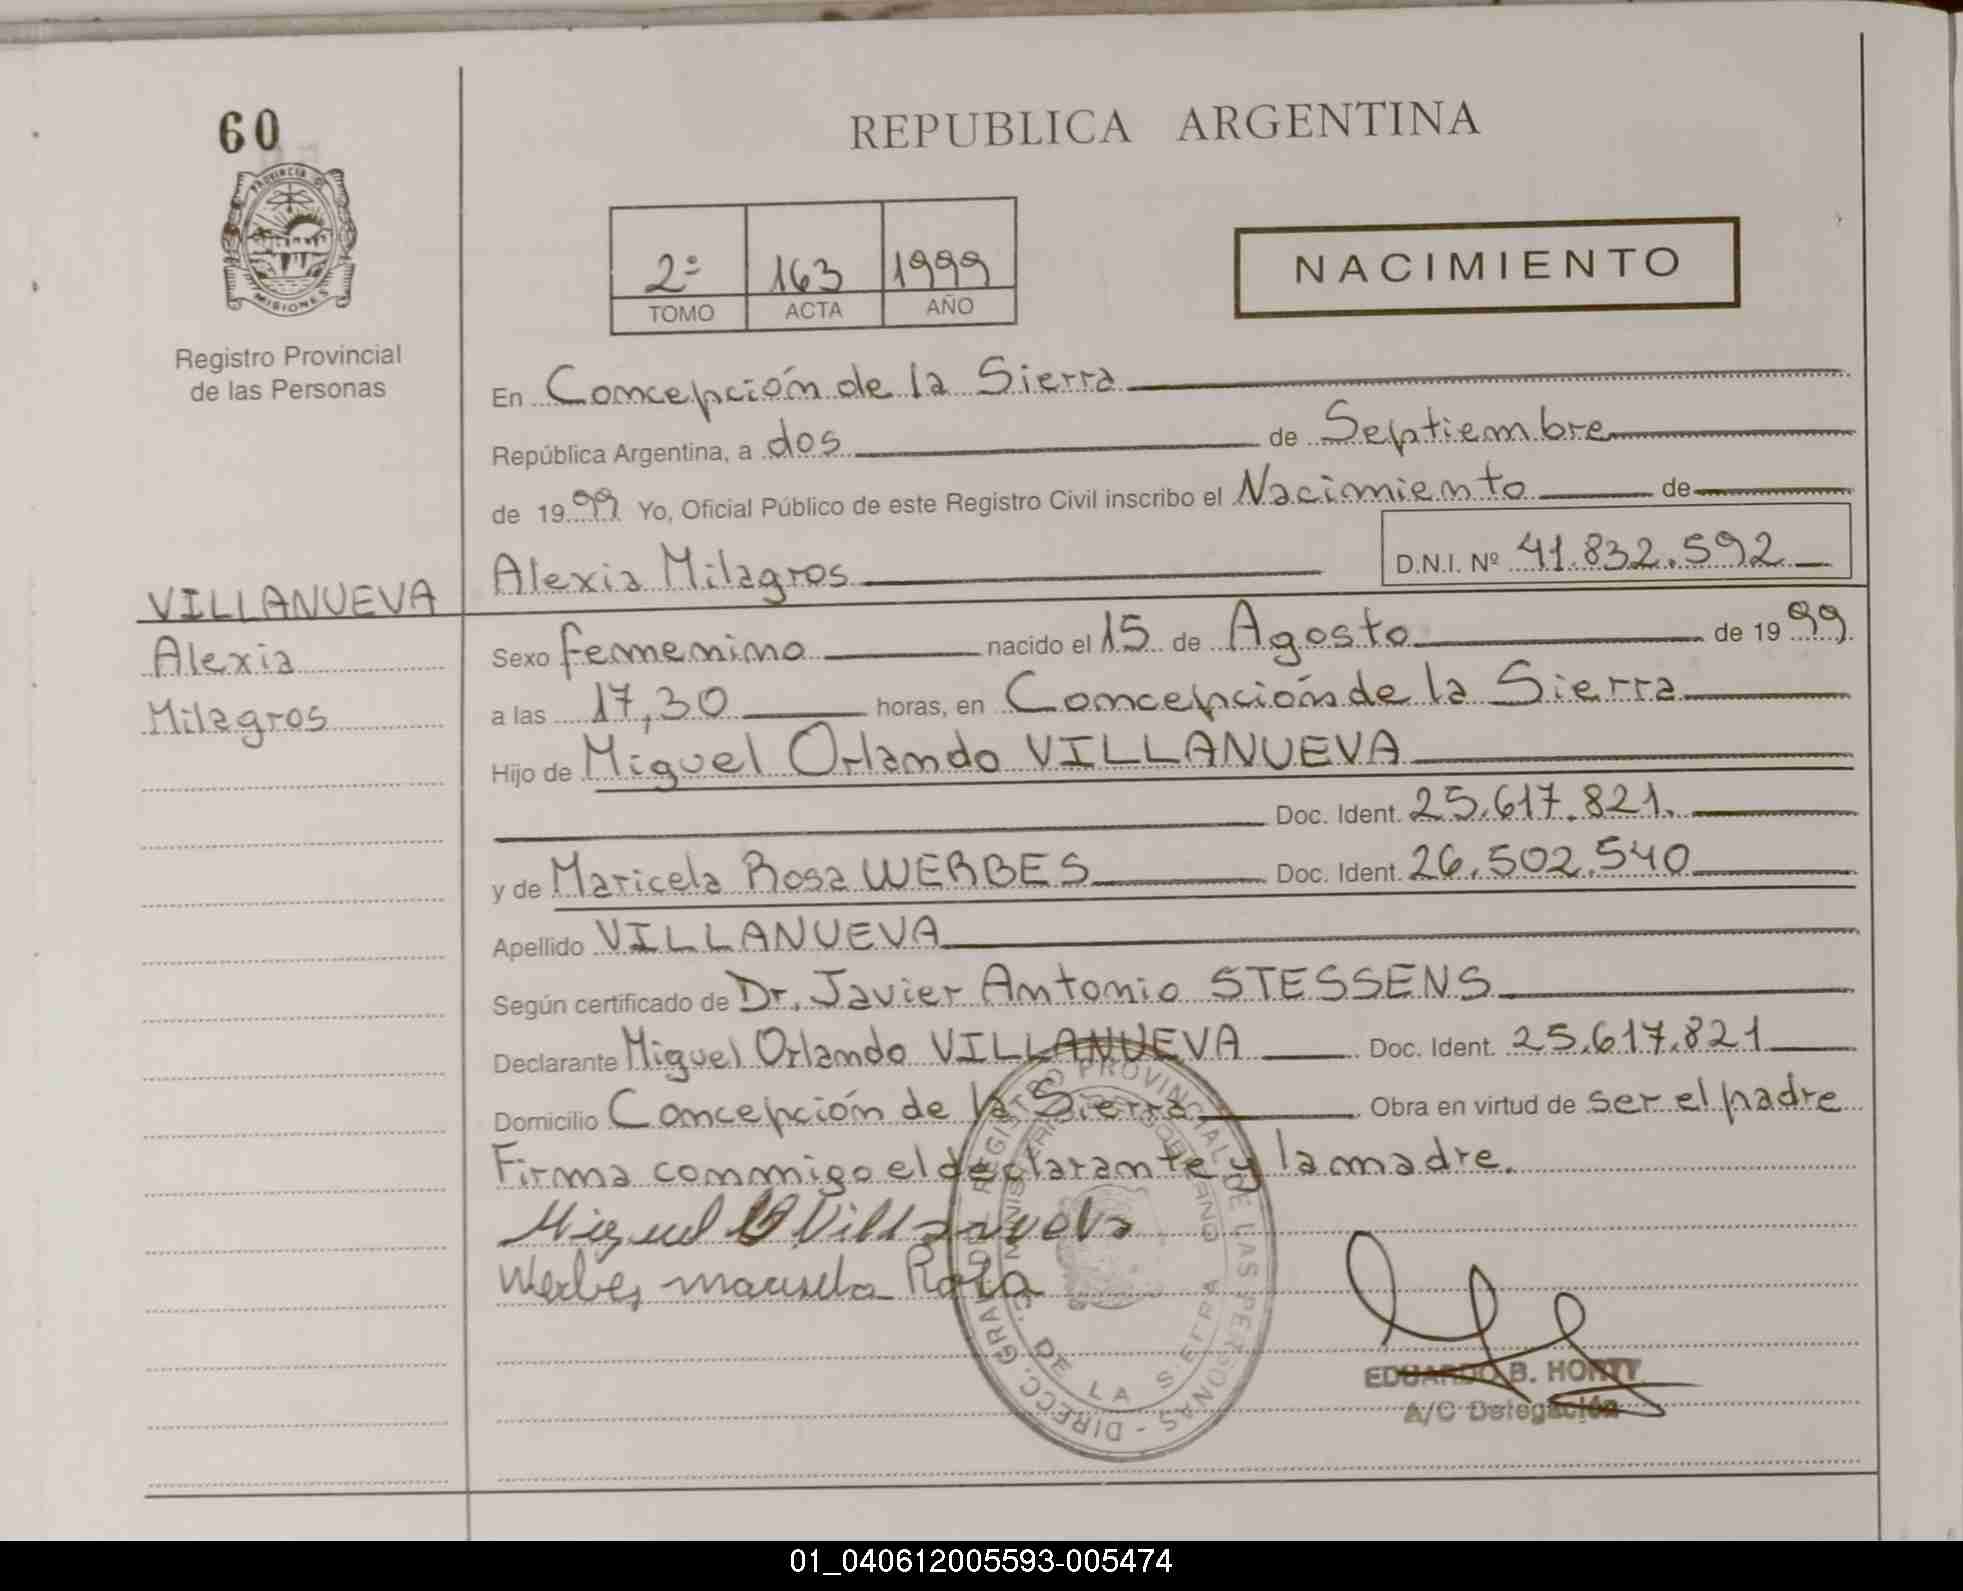 60
REPUBLICA ARGENTINA
PROVINCIA DE
MISIONES
Registro Provincial
de las Personas
2º 163 1999
TOMO ACTA AÑO
NACIMIENTO
En Concepción de la Sierra
República Argentina, a dos de Septiembre
de 1999 Yo, Oficial Público de este Registro Civil inscribo el Nacimiento de
Alexia Milagros D.N.I. Nº 41.832.592
VILLANUEVA
Alexia
Milagros
Sexo femenino nacido el 15 de Agosto de 1999
a las 17,30 horas, en Concepción de la Sierra
Hijo de Miguel Orlando VILLANUEVA
Doc. Ident. 25.617.821.
y de Maricela Rosa WERBES Doc. Ident. 26.502.540
Apellido VILLANUEVA
Según certificado de Dr. Javier Antonio STESSENS
Declarante Miguel Orlando VILLANUEVA Doc. Ident. 25.617.821
Domicilio Concepción de la Sierra Obra en virtud de ser el padre
Firma conmigo el declarante y la madre.
Miguel O Villanueva
Werbes Maricela Rosa
DIRECC. GRAL. DEL REGISTRO PROVINCIAL DE LAS PERSONAS -
MINISTERIO DE GOBIERNO
C. DE LA SIERRA
EDUARDO B. HORTY
A/C Delegación
01_040612005593-005474